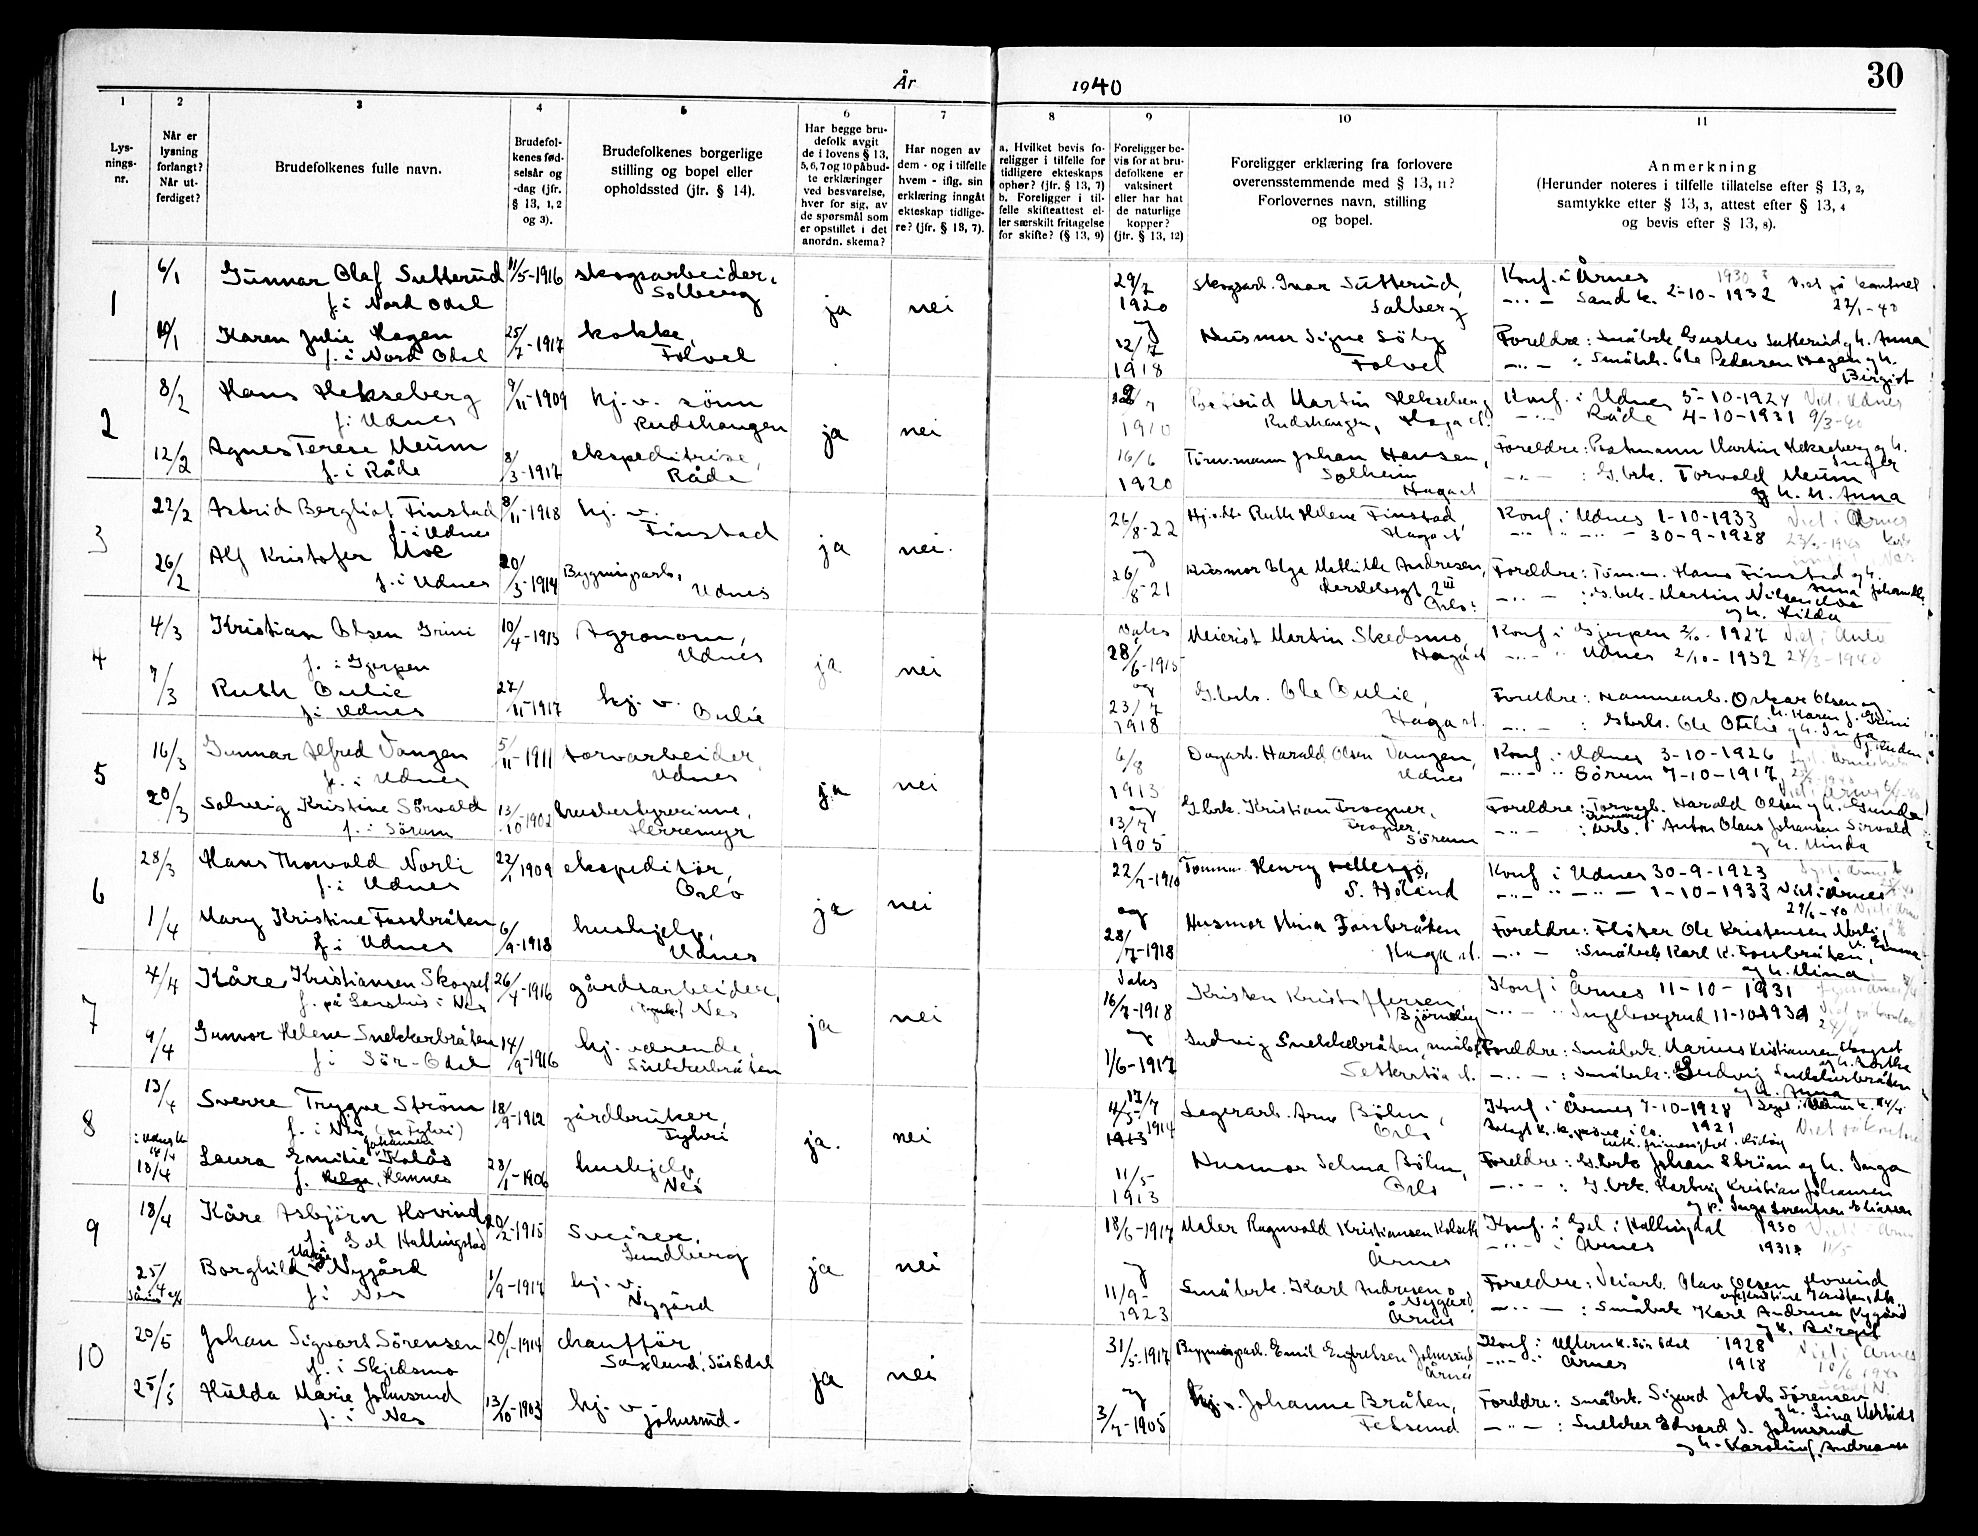 30
År 1940
1 2 3 4 5 6 7 8 9 10 11
Lys-
nings-
nr.
Når er
lysning
forlangt?
Når ut-
ferdiget?
Brudefolkenes fulle navn.
Brudefol-
kenes fød-
selsår og
-dag (jfr.
§ 13, 1, 2
og 3).
Brudefolkenes borgerlige
stilling og bopel eller
opholdssted (jfr. § 14).
Har begge bru-
defolk avgit
de i lovens § 13,
5, 6, 7 og 10 påbud-
te erklæringer
ved besvarelse,
hver for sig, av
de spørsmål som
er opstillet i det
anordn. skema?
Har nogen av
dem - og i tilfelle
hvem - iflg. sin
erklæring inngåt
ekteskap tidlige-
re? (jfr. § 13, 7).
a. Hvilket bevis fo-
religger i tilfelle for
tidligere ekteskaps
ophør? (jfr. § 13, 7)
b. Foreligger i til-
felle skifteattest el-
ler særskilt fritagelse
for skifte? (§ 13, 9)
Foreligger be-
vis for at bru-
defolkene er
vaksinert
eller har hat
de naturlige
kopper?
(jfr. § 13, 12)
Foreligger erklæring fra forlovere
overensstemmende med § 13, 11?
Forlovernes navn, stilling
og bopel.
Anmerkning
(Herunder noteres i tilfelle tillatelse efter § 13, 2,
samtykke efter § 13, 3, attest efter § 13, 4
og bevis efter § 13, 8).
1
6/1 Gunnar Olaf Sutterud 11/5-1916 skogsarbeider,
f. i Nord Odal Solberg
ja nei
29/7
1920
og
Skogsarb. Ivar Sutterud,
Solberg
Konf. i Årnes 1930
-"- Sand k. 2-10-1932 Viet på kontoret
10/1 Karen Julie Hagen 25/7-1917 kokke,
f. i Nord Odal Folvel
12/7
1918
Husmor Signe Söby
Folvel
Foreldre: Småbrk. Gustav Sutterud og h. Anna
-"- : Småbrk. Ole Pedersen Hagen og h.
Birgit
2
8/2 Hans Hekseberg 9/11-1909 hj. v. sönn
f. i Udnes Rudshaugen
ja nei
1910
Martin Hekseberg
Rudshaugen, Haga st.
Konf. i Udnes 5-10-1924 Viet i Udnes
-"- Råde 4-10-1931 9/3-40
12/2 Agnes Terese Meum 8/3-1917 ekspeditrise,
f. i Råde Råde
16/6
1920
Tömmermann Johan Hansen,
Solheim
Haga st
Foreldre: Postmann Martin Hekseberg og h.
Inger
-"- : G.brk. Torvald Meum
og h. M. Anna
3
22/2 Astrid Bergliot Finstad 8/11-1918 hj. v.
f. i Udnes Finstad
ja nei.
26/8-22
og
Hj. v. Ruth Helene Finstad,
Haga st
Konf. i Udnes 1-10-1933 Viet i Årnes
-"- 30-9-1928
26/2 Alf Kristofer Moe 20/3-1914 Bygningsarb.,
f. i Udnes Udnes
26/8-21
Husmor Olga Mathilde Andresen,
Oslo
Foreldre: Töm.m. Hans Finstad og h.
Anna
-"- : G.brk. Martin Nilsen Moe
og h. Hilda
4
4/3 Kristian Olsen Grini 10/4-1913 Agronom,
f. i Gjerpen Udnes
ja nei
Vaks
28/6-1915
og
Meierist Martin Skedsmo,
Haga st
Konf i Gjerpen 1927
-"- Udnes 2/10-1932 24/3-1940
7/3 Ruth Oulie 27/11-1917 hj. v. Oulie
f. i Udnes
23/7
1918
G.brk. Ole Oulie,
Haga st.
Foreldre: Havnearb. Oskar Olsen og
h. Karen f. Grini
-"- : Gbrk. Ole Oulie og h. Inga
5
16/3 Gunnar Alfred Vangen 5/11-1911 torvarbeider,
f. i Udnes Udnes
ja nei
6/8
1913
og
Dagarb. Harald Olsen Vangen,
Udnes
Konf. i Udnes 3-10-1926
-"- Sörum 7-10-1917
20/3 Solveig Kristine Sörvald 13/10-1902 husbestyrerinne,
f. i Sörum Herremyr
13/7
1905
G.brk. Kristian Frogner,
Frogner,
Sörum
Foreldre: Torvarb. Harald Olsen og h. Gunda
-"- : Arb. Anton Olaus Johansen Sirvald
og h. Minda
6
28/3 Hans Thorvald Norli 22/1 1909 ekspeditör,
f. i Udnes Oslo
ja nei
22/7-1910
og
Tömm. Henry
S. Höland
Konf i Udnes 30-9-1923
-"- 1-10-1933 Viet i Årnes
29/6-40
1/4 Mary Kristine Fossbråten 6/9-1918 hushjelp,
f. i Udnes Udnes
28/7-1918
Husmor Mina Fossbråten
Haga st.
Foreldre: Flöter Ole Kristensen Norli og
h. Emma
-"- : Småbrk Karl K. Fossbråten,
og h. Mina
7
4/4 Kåre Kristiansen Skogset 26/4-1916 gårdsarbeider,
Nes Nes
ja nei
Vaks
16/7-1918
og
Kristen Kristoffersen,
Konf. i Årnes 11-10-1931
-"- Ingeborgrud
9/4 Gunvor Helene Snekkerbråten 14/9-1916 hj. værende,
f. i Sör-Odal Snekkerbråten
1/6-1917
Ludvig Snekkerbråten, småbr.
Foreldre: Småbrk. Marius Kristiansen Skogset
-"- : Småbrk: Ludvig Snekkerbråten
og h. Anna
8
13/4 Sverre Trygve Ström 18/9-1912 gårdbruker,
f. i Nes Fyhri
ja. nei
1914
1913
Lagerarb. Arne Böhn,
Oslo
Konf i Årnes 7-10-1928
1921
i Udnes k
18/4 Laura Emilie Johansen Kolås 28/1-1906 hushjelp,
f. Hemnes Nes
11/5
1913
Husmor Selma Böhn,
Oslo
Foreldre: G.brk Johan Ström og h. Inga
-"- : G.brk. Herberg Kristian Johansen
9
18/4 Kåre Asbjörn Hovind 20/2-1915 Sveiser,
f. i Gol Hallingdal Sundberg
ja nei
18/6-1917
og
Maler Ragnvald Kristiansen Kolseth
Årnes
Konf. i Gol i Hallingdal 1930
-"- i Årnes 1931 11/5
25/4 Borghild Marie Nygård 1/9-1917 hj. v.
f. i Nes Nygård
11/9-
1923
Småbrk. Karl Andresen
Nygård
Årnes
Foreldre: Veiarb. Olav Olsen Hovind
-"- : Småbrk Karl Andresen Nygård
og h. Birgit
10
20/5 Johan Sigvart Sörensen 20/1-1914 chauffør,
f. i Skjedsmo Saxlund, Sör Odal
ja nei
31/5-1917
og
Bygningsarb. Emil Engebretsen Johnsrud
Årnes
Konf. i Ullern k. Sör Odal 1928
-"- Årnes 1918
25/5 Hulda Marie Johnsrud 13/10-1903 hj. v.
f. i Nes Johnsrud.
3/7-1905
Hj. v. Johanne Bråten,
Fetsund
Foreldre: Småbrk. Sigurd Jakob Sörensen
og h. Lina
-"- : Snekker Edvard J. Johnsrud
og h. Karoline Andreassen